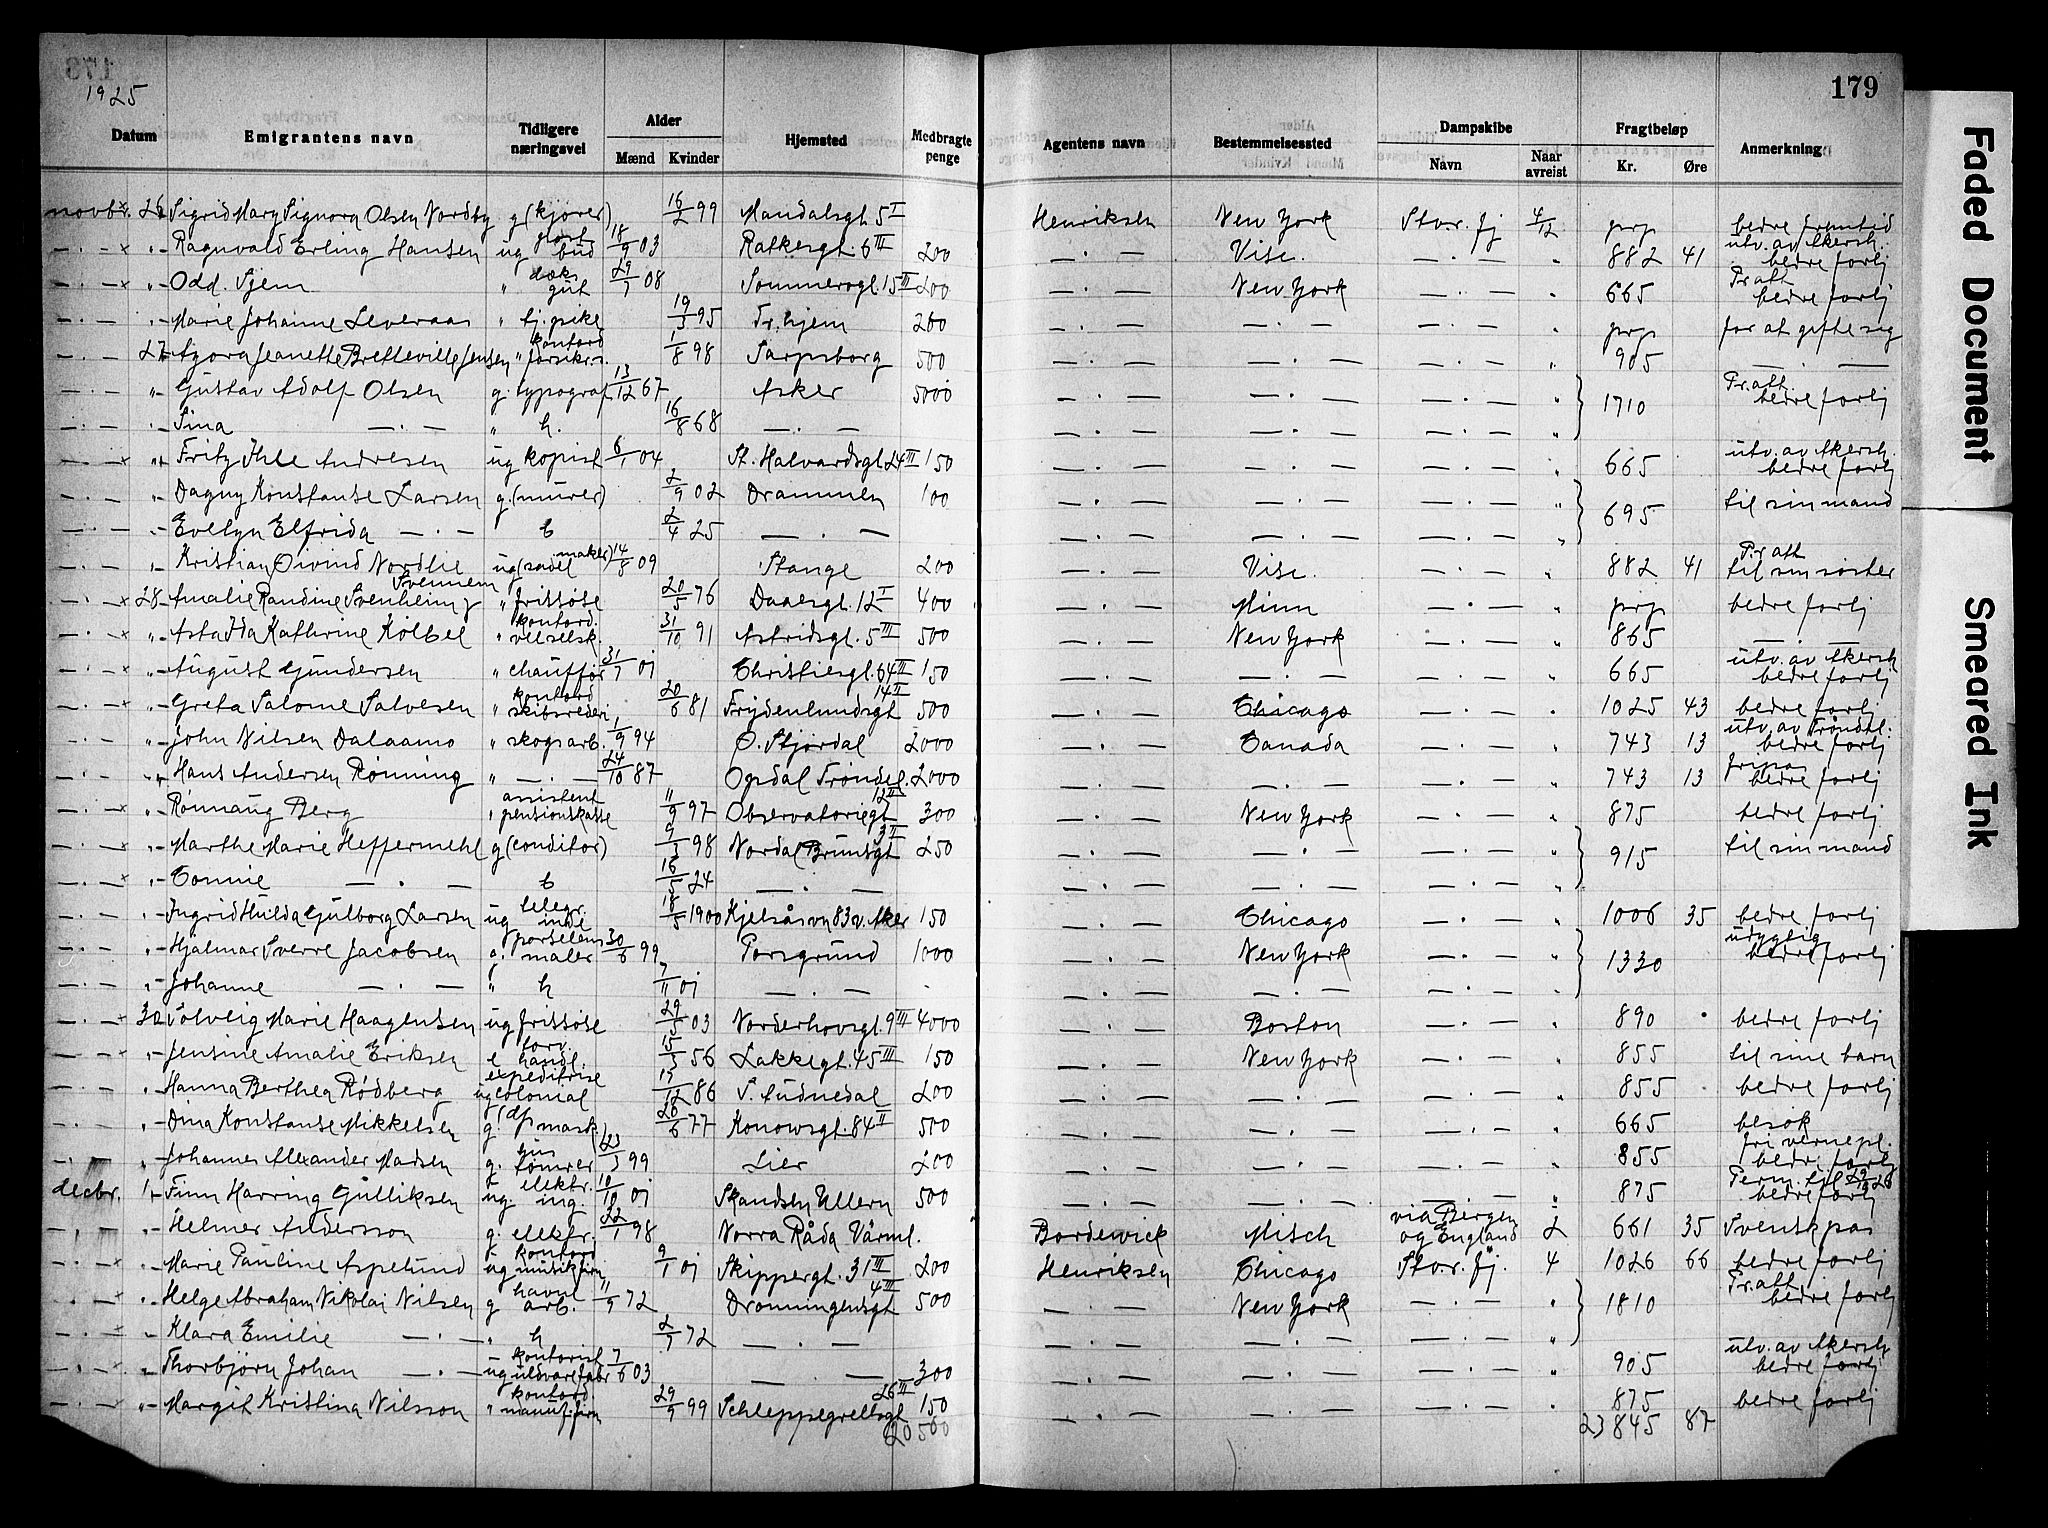 179
1925
Datum Emigrantens navn Tidligere næringsvei Alder Mænd Kvinder Hjemsted Medbragte penge Agentens navn Bestemmelsessted Dampskibe Navn Naar avreist Fragtbeløp Kr. Øre Anmerkning
novbr. 26 Sigrid Mary Signora Olsen Nordby g (kjører) 16/2 99 Mandalsgt. 5 I Henriksen New York Stav. fj 4/12 prp bedre fremtid
Ragnvald Erling Hansen ug bud 18/9 03 Ratkesgt. 6 III 200 Visc. 882 41 utv. av Akersh. bedre forlj
Odd Sjem " gut 29/7 08 Sommerrogt. 15 III 200 New York 665 Pr. att bedre forlj
Marie Johanne Leveraas " tj. pike 19/3 95 Fr. hjem 200 prp for at gifte sig
27 Agora Jeanette Bretteville Jensen " kontord forsikr. 1/8 98 Sarpsborg 500 905
Gustav Adolf Olsen g. typograf 13/12 67 Asker 5000 1710 Pr. att. bedre forlj
Sina " h. 16/8 68
Fritz Ihle Andresen ug kopist 6/1 04 St. Halvardsgt. 24 III 150 665 utv. av Akersh. bedre forlj
Dagny Konstanse Larsen g. (murer) 2/9 02 Drammen 100 695 til sin mand
Evelyn Elfrida b 2/4 25
Kristian Oivind Nordlie ug (sadelmaker) 14/8 09 Stange 200 Visc. 882 41 Pr. att til sin søster
28 Amalie Randine Svenheim Svennem " frissøse 20/5 76 Daaesgt. 12 I 400 Minn prp bedre forlj
Asta Ida Kathrine Kölbel " kontord. velselsk. 31/10 91 Astridsgt. 5 III 500 New York 865
August Gundersen " chauffør 31/7 01 Christiesgt. 64 III 150 665 utv. av Akersh bedre forlj
Greta Salome Salvesen " kontord skibsrederi 20/6 81 Frydenlundsgt 14 II 500 Chicago 1025 43 bedre forlj
John Nilsen Dalaamo " skogsarb. 1/9 94 Ø. Stjørdal 2000 Canada 743 13 utv. av Trøndel. bedre forlj
Hans Andersen Rønning " 24/10 87 Opdal Trøndel. 2000 743 13 fripas bedre forlj
Rønnaug Berg " assistent pensionskasse 11/9 97 Observatoriegt 12 II 300 New York 875 bedre forlj
Marthe Marie Heffermehl g (conditor) 9/3 98 Nordal Brunsgt 3 II 250 915 til sin mand
Connie b 16/5 24
Ingrid Hulda Gulborg Larsen ug telegr. 18/5 1900 Kjelsåsvn 83 v. Aker 150 Chicago 1006 35 bedre forlj
Hjalmar Sverre Jacobsen g. porselens maler 30/6 99 Porsgrund 1000 New York 1330 udygtig bedre forlj
Johanne " h 7/11 01
30 Solveig Marie Haagensen ug frissøse 29/5 03 Norderhovsgt. 9 III 4000 Boston 890 bedre forlj
Jensine Amalie Eriksen e forv. handl. 15/3 56 Lakkegt. 45 III 150 New York 855 til sine barn
Hanna Berthea Rødberg ug expeditrise colonial 17/12 86 S. Audnedal 200 855 bedre forlj
Dina Konstanse Mikkelsen g. (dpmask) 26/6 77 Konowsgt. 84 II 500 665 besøk
Johannes Alexander Madsen g. hus tømrer 23/3 99 Lier 200 855 fri vernepl. bedre forlj
decbr. 1 Finn Harring Gulliksen ug. elektr. ing. 10/10 01 Skandsen Ullern 500 875 Perm. til bedre forlj
Helmer Andersson g. elektr. 22/1 98 Norra Råda Värml. Bordewick Misch via Bergen og England 2 661 35 Svensk pas
Marie Pauline Aspelund ug kontord musikfirm 9/1 01 Skippergt. 31 III 200 Henriksen Chicago Stav. fj. 4 1026 66 bedre forlj
Helge Abraham Nikolai Nilsen g havnl arb. 11/9 72 Dronningensgt 4 III 500 New York 1810 Fr. att. bedre forlj
Klara Emilie " h 2/7 72
Thorbjörn Johan ug kontorist uldvarefabr 7/6 03 300 905 utv. av Akersh bedre forlj
Margit Kristina Nilsson " kontord. manuf. firm 29/9 99 Schleppegrellsgt 26 III 150 875 bedre forlj
20500 23845 87
Faded Document
Smeared Ink